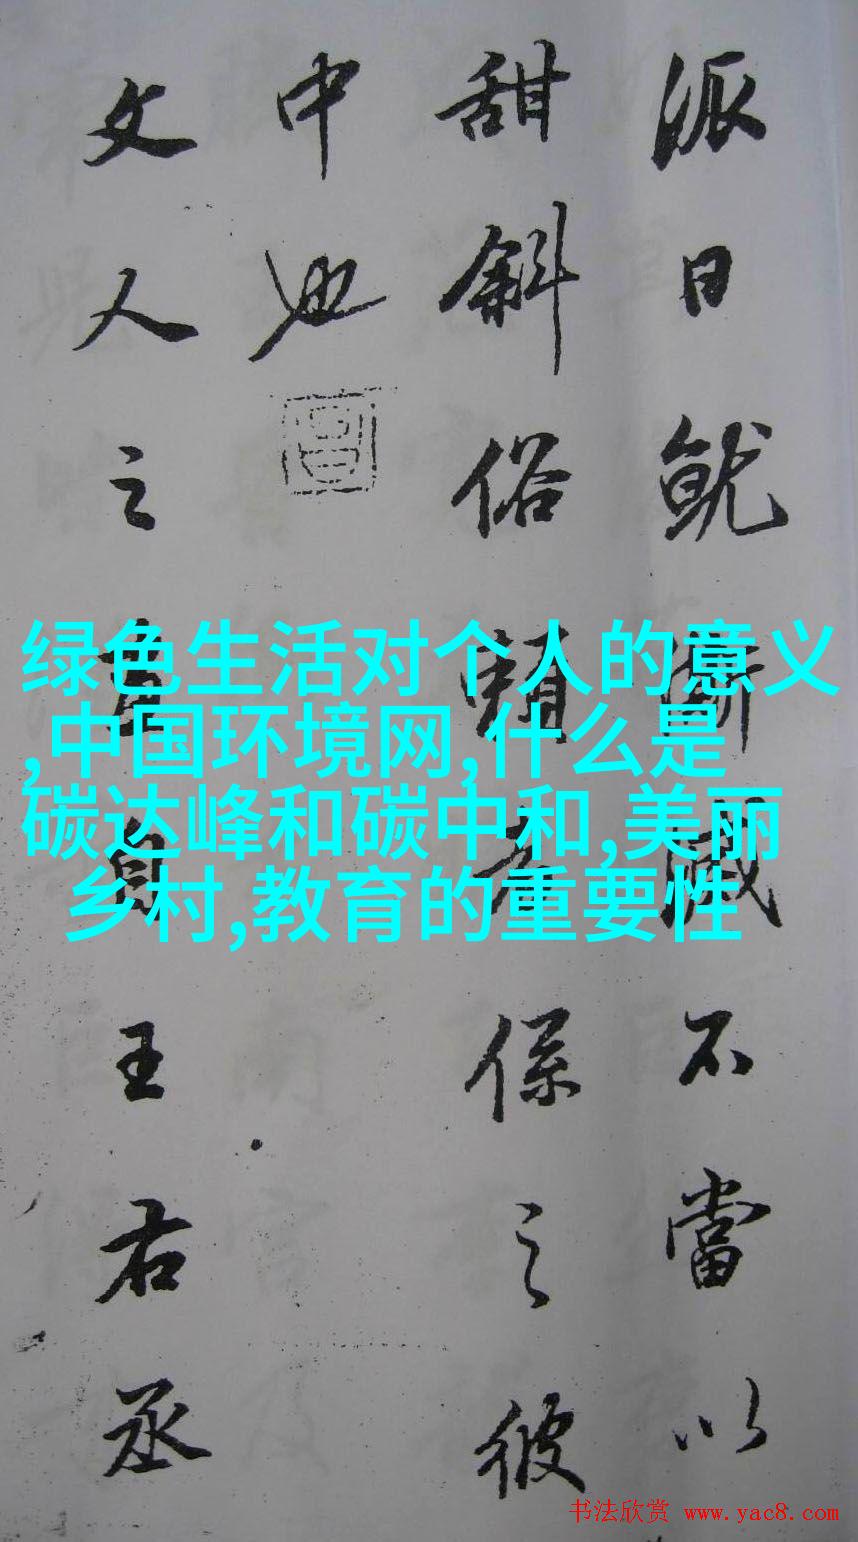 派日就澌滅不當以
甜斜俗賴者係之彼
中也
文人之畫自王右丞
绿色生活对个人的意义
,中国环境网,什么是
碳达峰和碳中和,美丽
乡村,教育的重要性
书法欣赏 www.yac8.com